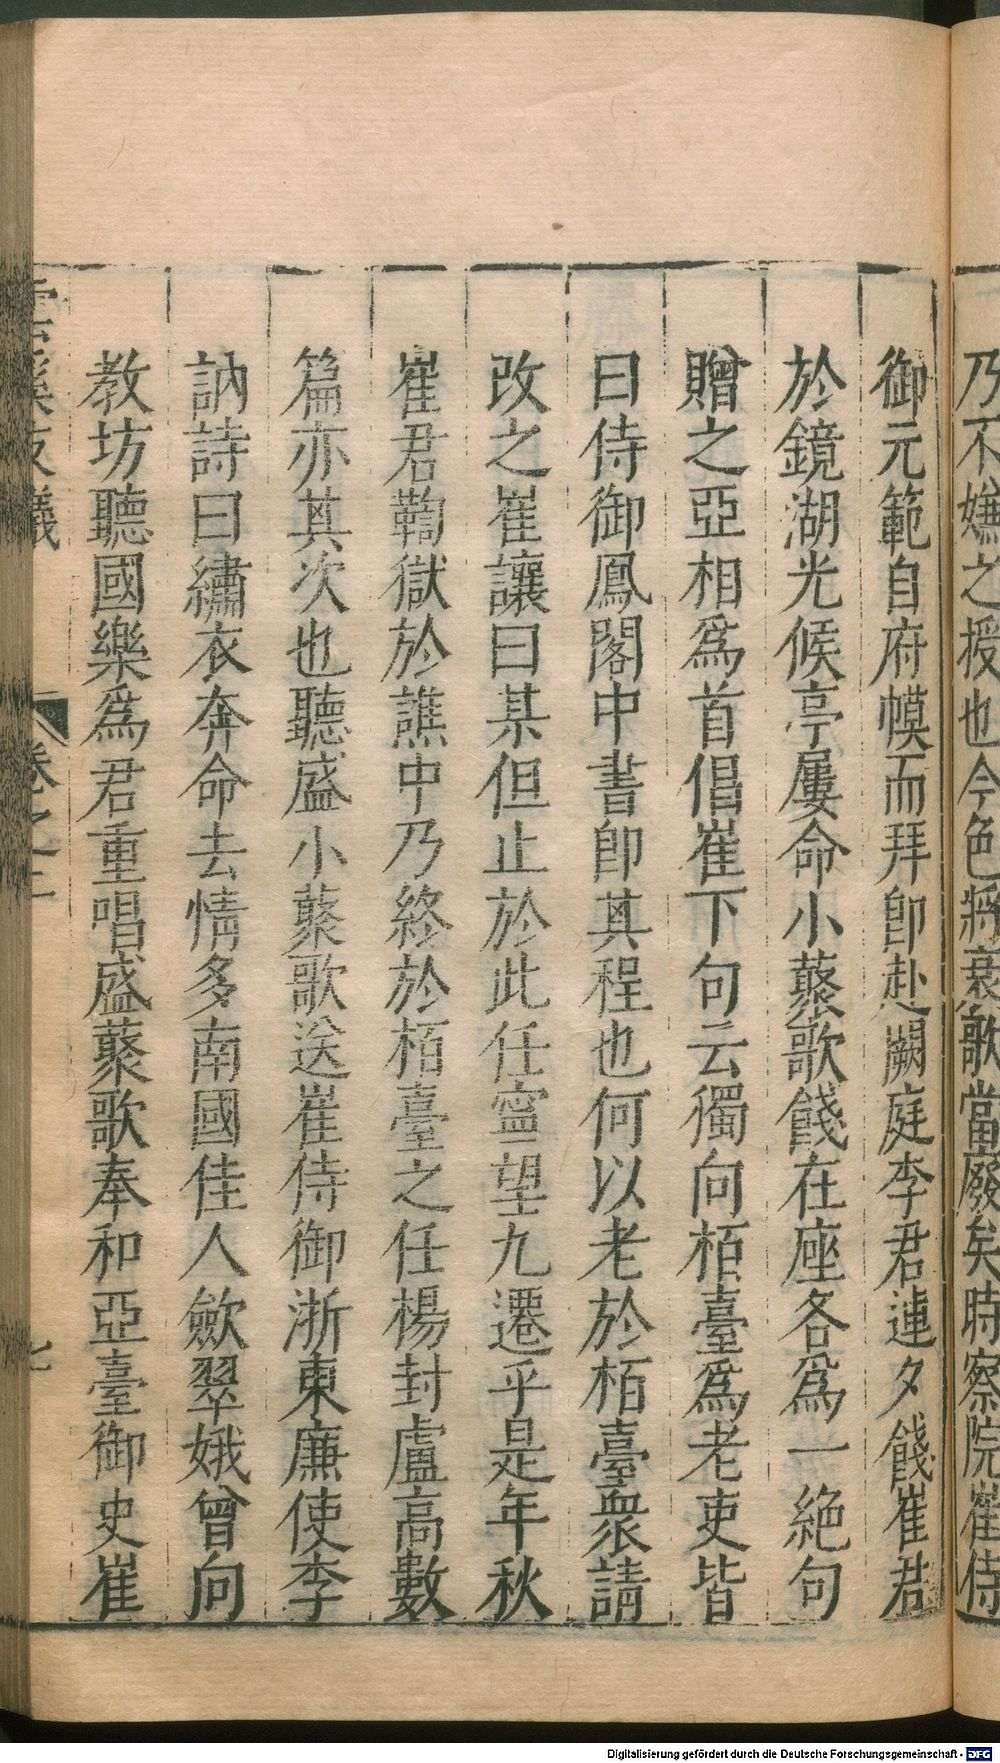 乃不嫌之授也今色將衰歌當廢矣時察院崔侍
御元範自府幙而拜卽赴闕庭李君連夕餞崔君
於鏡湖光候亭屢命小藂歌餞在座各爲一絶句
贈之亞相爲首倡崔下句云獨向栢臺爲老吏皆
曰侍御鳳閣中書卽其程也何以老於栢臺衆請
改之崔讓曰某但止於此任寧望九遷乎是年秋
崔君鞫獄於譙中乃終於栢臺之任楊封盧高數
篇亦其次也聽盛小藂歌送崔侍御浙東廉使李
訥詩曰繡衣奔命去情多南國佳人歛翠娥曾向
教坊聽國樂爲君重唱盛藂歌奉和亞臺御史崔
雲溪友議 卷之上 七
Digitalisierung gefördert durch die Deutsche Forschungsgemeinschaft - DFG